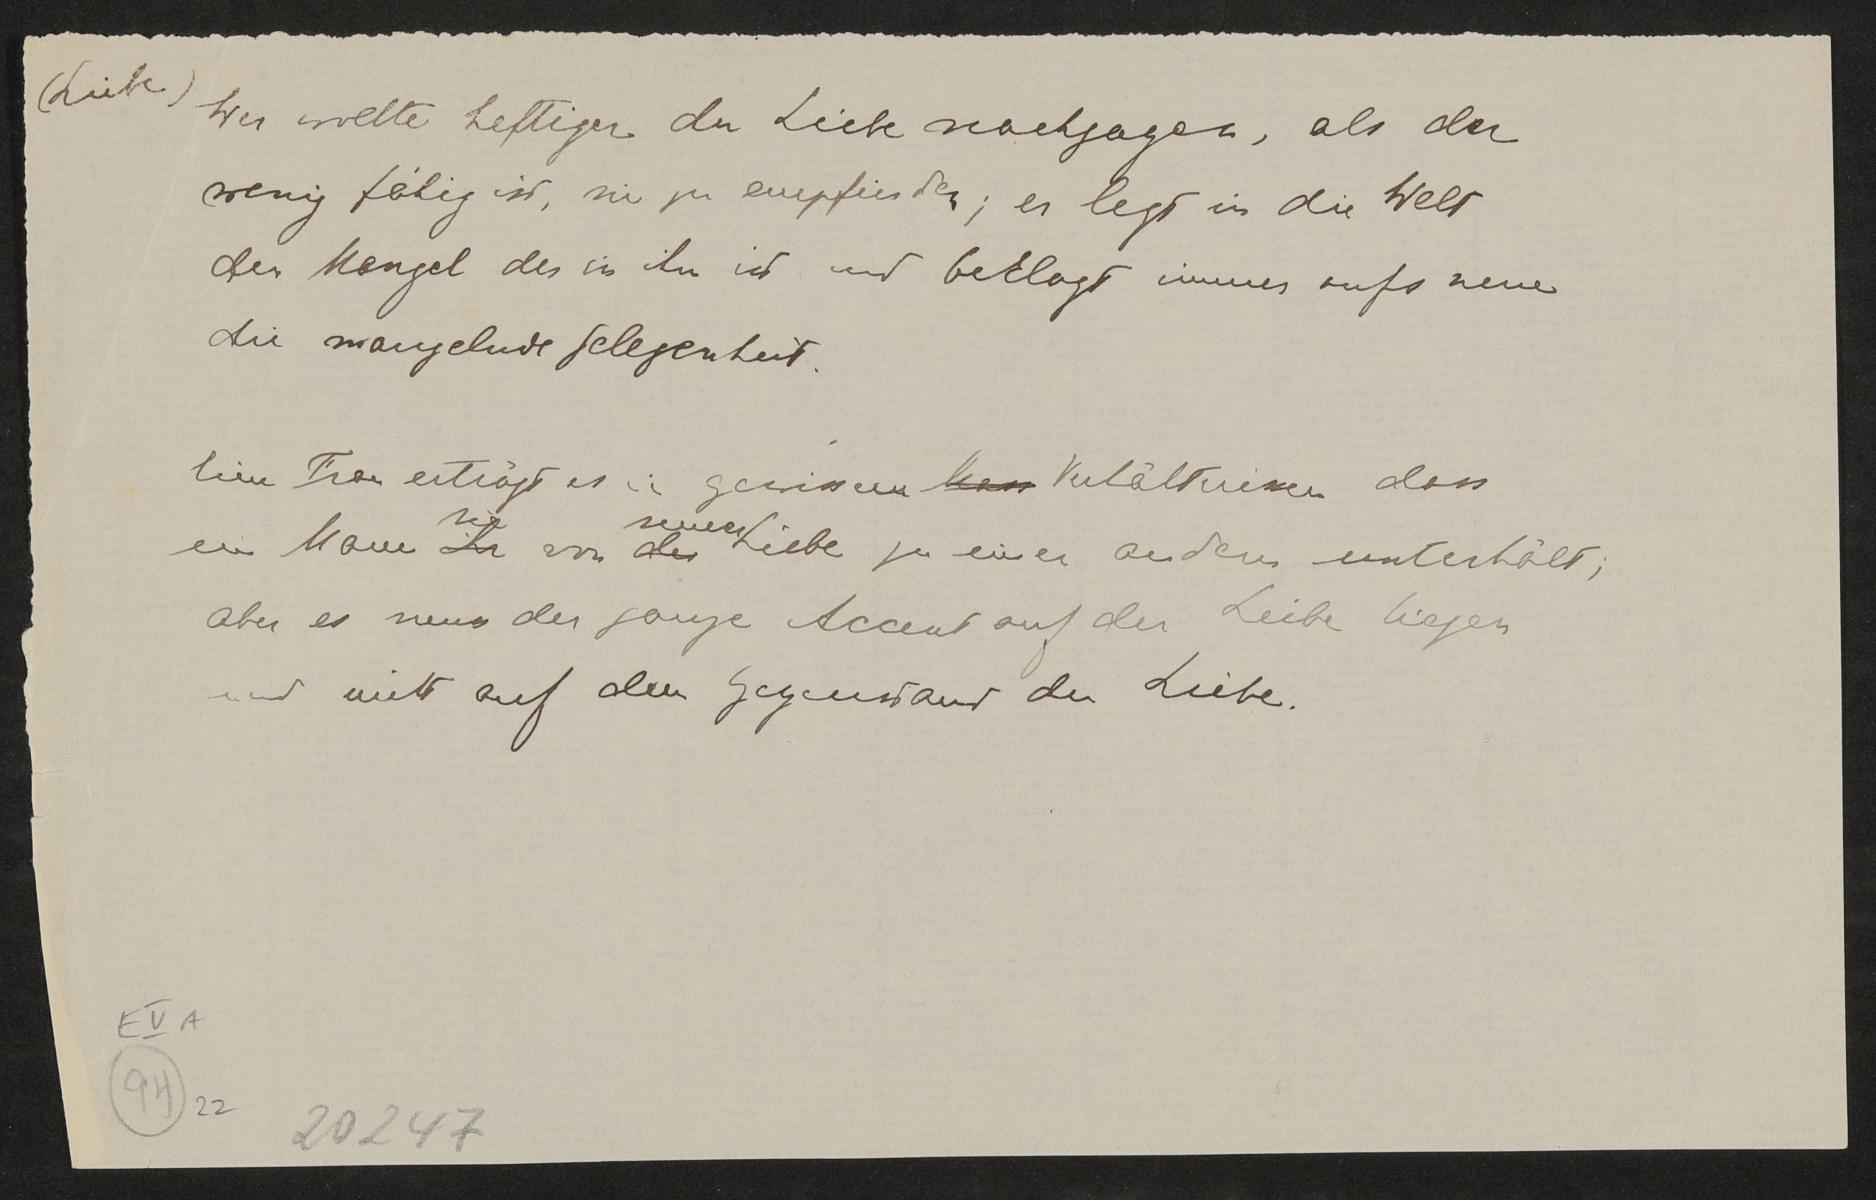 (Liebe)
Wer wollte heftiger der Liebe nachjagen, als der
wenig fähig ist, sie zu empfinden; er legt in die Welt
den Mangel der in ihm ist und beklagt immer aufs neue
die mangelnde Gelegenheit.
Eine Frau erträgt es in gewissen Verhältnissen dass
sie seiner
ein Mann ihr von der Liebe zu einer andern unterhält;
aber es muss der ganze Accent auf der Liebe liegen
und nicht auf dem Gegenstand der Liebe.
E V A
94 22
20247